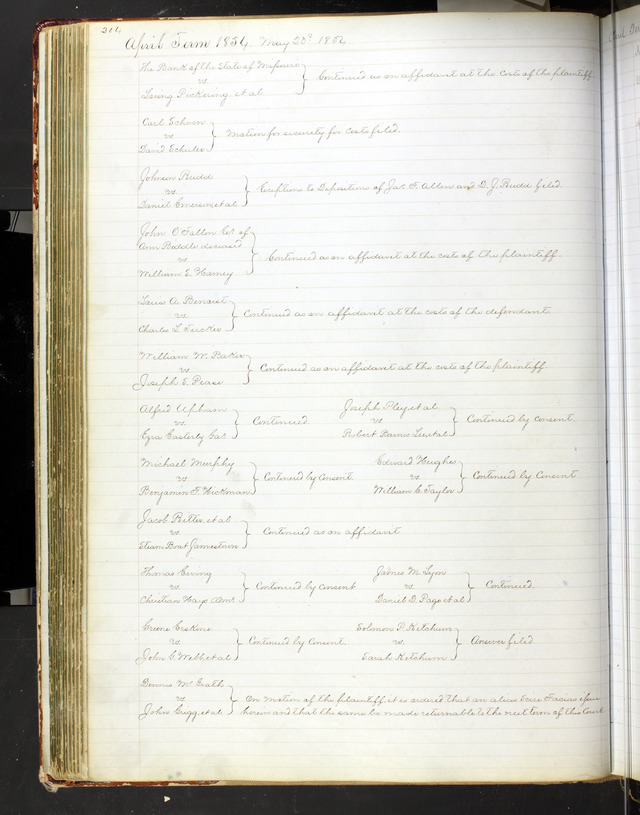 April Term 1854 May 20th 1854
The Bank of the State of Missouri
vs.
Loring Pickering et al
Continued as on affidavit at the costs of the plaintiff.
Carl
vs
David
Motion for security for costs filed.
Johnson Rudd
vs.
Daniel Emerson et al
Exceptions to Depositions of Jas. F. Allen and D. J. Rudd filed.
John O'Fallon Exr of
Ann Biddle deceased
vs.
William S. Harney
Continued as on affidavit at the costs of the plaintiff.
Louis A. Benoist
vs.
Charles L. Tucker
Continued as on affidavit at the costs of the defendant
William W. Baker
vs.
Joseph E. Pease
Continued as on affidavit at the costs of the plaintiff.
Alfred Upham
vs
Ezra Easterly
Continued.
Joseph et al
vs
Robert Barnes et al
Continued by consent.
Michael Murphy
vs
Benjamin F. Hickman
Continued by Consent.
Edward Hughes
vs
William C. Taylor
Continued by Consent
Jacob Ritter et al
vs.
Steam Boat Jamestown
Continued as on affidavit
Thomas Ewing
vs.
Christian Hays
Continued by consent
James M. Lynn
vs.
Daniel D. Page et al
Continued.
Greene Erskine
vs.
John G. Webb et al
Continued by Consent.
Solomon P. Ketchum
vs.
Sarah Ketchum
Answer filed
Dennis McGrath
vs
John Grigg, et al
On motion of the plaintiff, it is ordered that an alias Scire Facias issue
herein and that the same be made returnable to the next term of this Court